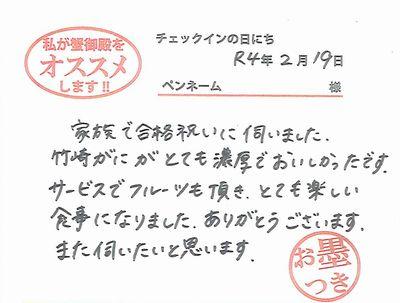 私が蟹御殿を
オススメ
します!!
チェックインの日にち
R4年2月19日
ペンネーム 様
家族で合格祝いに伺いました.
竹崎がに がとても濃厚でおいしかったです.
サービスでフルーツも頂き、とても楽しい
食事になりました. ありがとうございます.
また伺いたいと思います.
お墨
つき